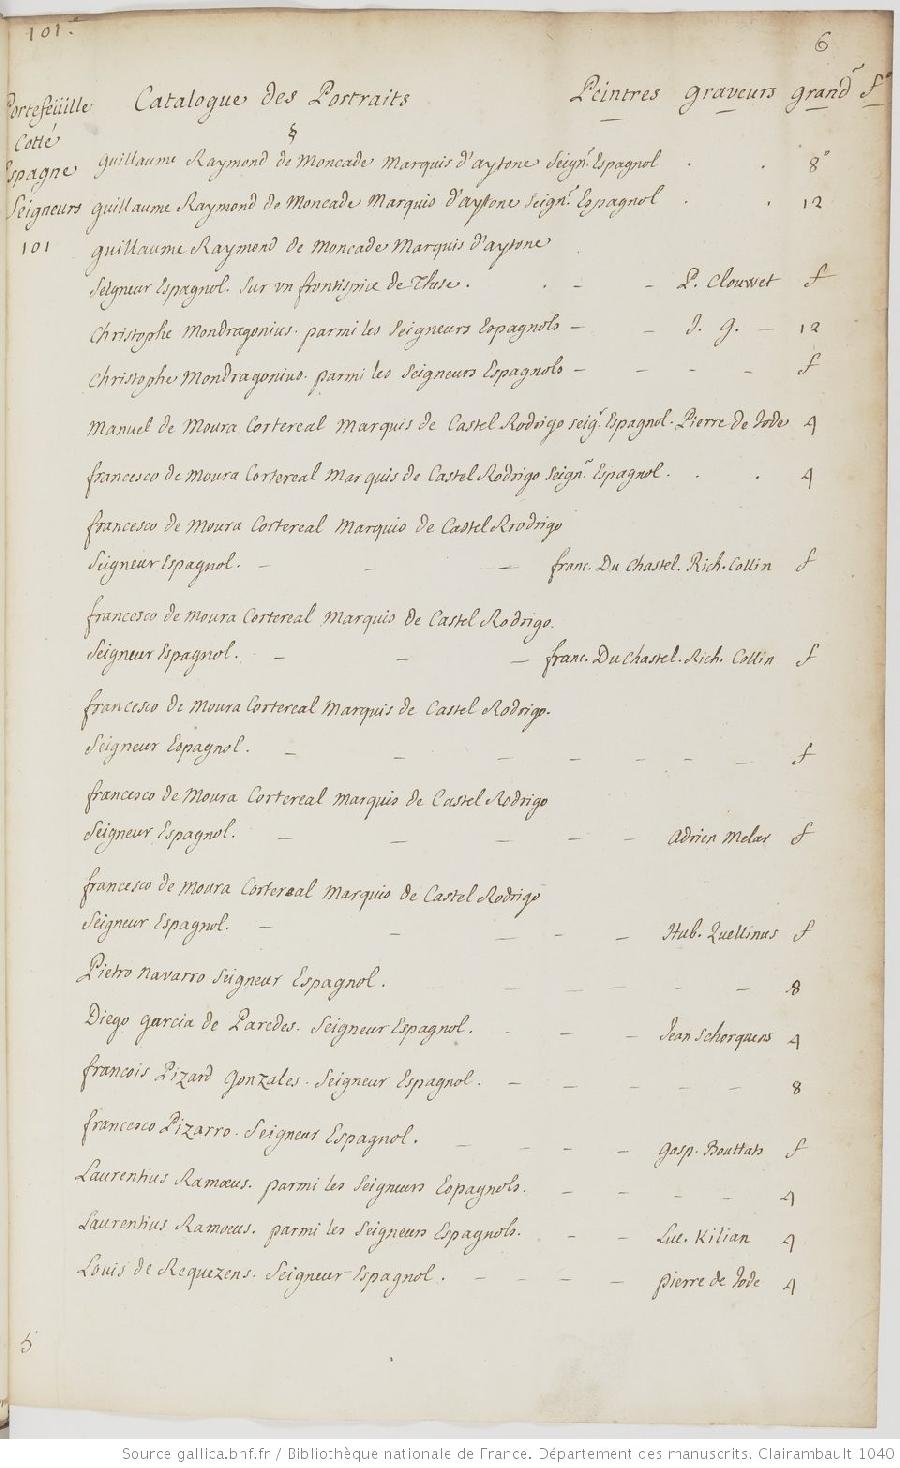 101.e
6
Portefeüille Catalogue des Portraits Peintres graveurs grandr f.o
Cotté
§
Espagne
guillaume Raymond de Moncade Marquis d'aytone Seignr. Espagnol . . 8o
Seigneurs
guillaume Raymond de Moncade Marquis d'aytone Seignr. Espagnol . . 12
101
guillaume Raymond de Moncade Marquis d'aytone
Seigneur Espagnol. Sur un frontispice de These. . – – P. Clouwet f
Christophe Mondragonius. parmi les Seigneurs Espagnols – – J. g. – 12
Christophe Mondragonius. parmi les Seigneurs Espagnols – – – – f
Manuel de Moura Cortereal Marquis de Castel Rodrigo seigr. Espagnol. Pierre de Jode 4
francesco de Moura Cortereal Marquis de Castel Rodrigo Seignr. Espagnol. . . 4
francesco de Moura Cortereal Marquis de Castel Rrodrigo
Seigneur Espagnol. – – – franc. Du Chastel. Rich. Collin f
francesco de Moura Cortereal Marquis de Castel Rodrigo.
Seigneur Espagnol. – – – franc. Du Chastel. Rich. Collin f
francesco de Moura Cortereal Marquis de Castel Rodrigo.
Seigneur Espagnol. – – – – – – – f
francesco de Moura Cortereal Marquis de Castel Rodrigo
Seigneur Espagnol. – – – – – Adrien Melar f
francesco de Moura Cortereal Marquis de Castel Rodrigo
Seigneur Espagnol. – – – – – Hub. Quellinus f
Pietro Navarro Seigneur Espagnol. – – – – – 8
Diego garcia de Paredes. Seigneur Espagnol. – – – Jean Schorquens 4
francois Pizard gonzales. Seigneur Espagnol. – – – – – 8
francesco Pizarro. Seigneur Espagnol. – – – – gasp. Bouttats f
Laurentius Ramœus. parmi les Seigneurs Espagnols. – – – – 4
Laurentius Ramœus. parmi les Seigneurs Espagnols. – – Luc. Kilian 4
Louis de Requezens. Seigneur Espagnol. – – – – pierre de Jode 4
5
Source gallica.bnf.fr / Bibliothèque nationale de France. Département des manuscrits. Clairambault 1040